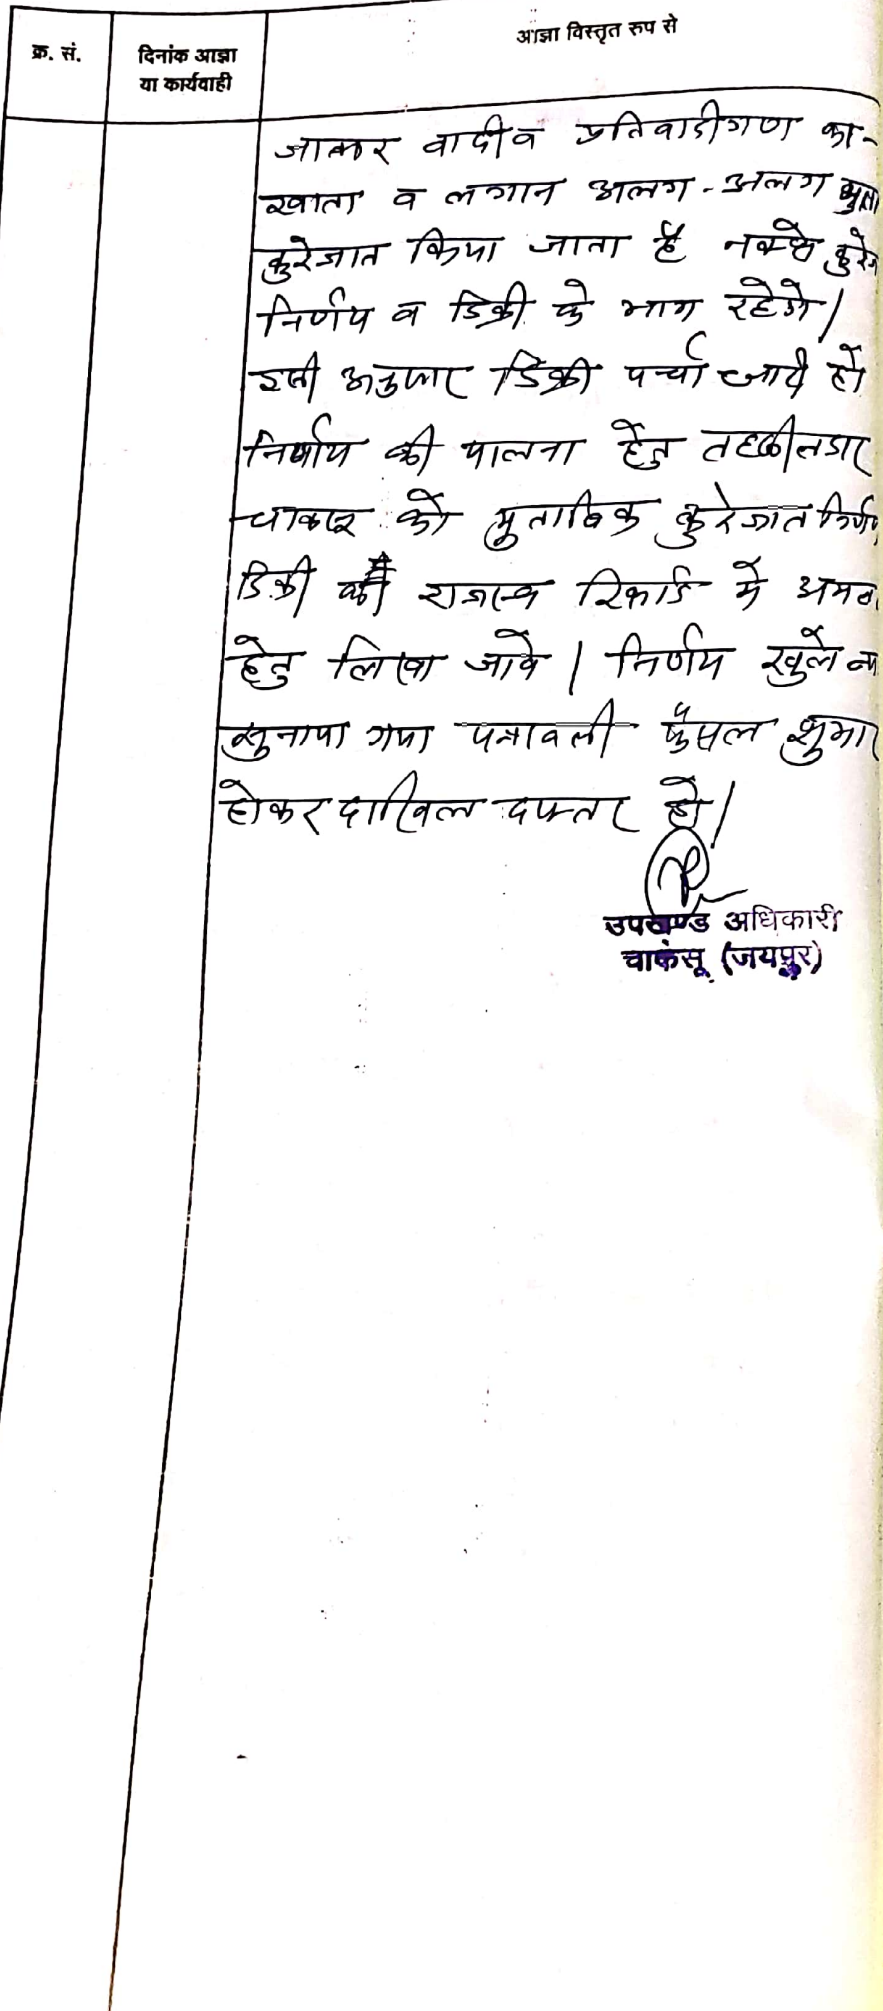 क्र. सं.
दिनांक आज्ञा
या कार्यवाही
आज्ञा विस्तृत रुप से
जाकर वादी व प्रतिवादीगण का-
खाता व लगान अलग-अलग मुता
कुरेजात किया जाता है नक्शे कुरेज
निर्णय व डिक्री के भाग रहेगे।
इसी अनुसार डिक्री पर्चा जारी हो
निर्णय की पालना हेतु तहसीलदार
चाकसू को मुताबिक कुरेजात निर्णय
डिक्री राजस्व रिकार्ड में अमल
हेतु लिखा जावे। निर्णय खुले न्या
सुनाया गया पत्रावली फैसल शुमार
होकर दाखिल दफ्तर हो।
उपखण्ड अधिकारी
चाकसू (जयपुर)